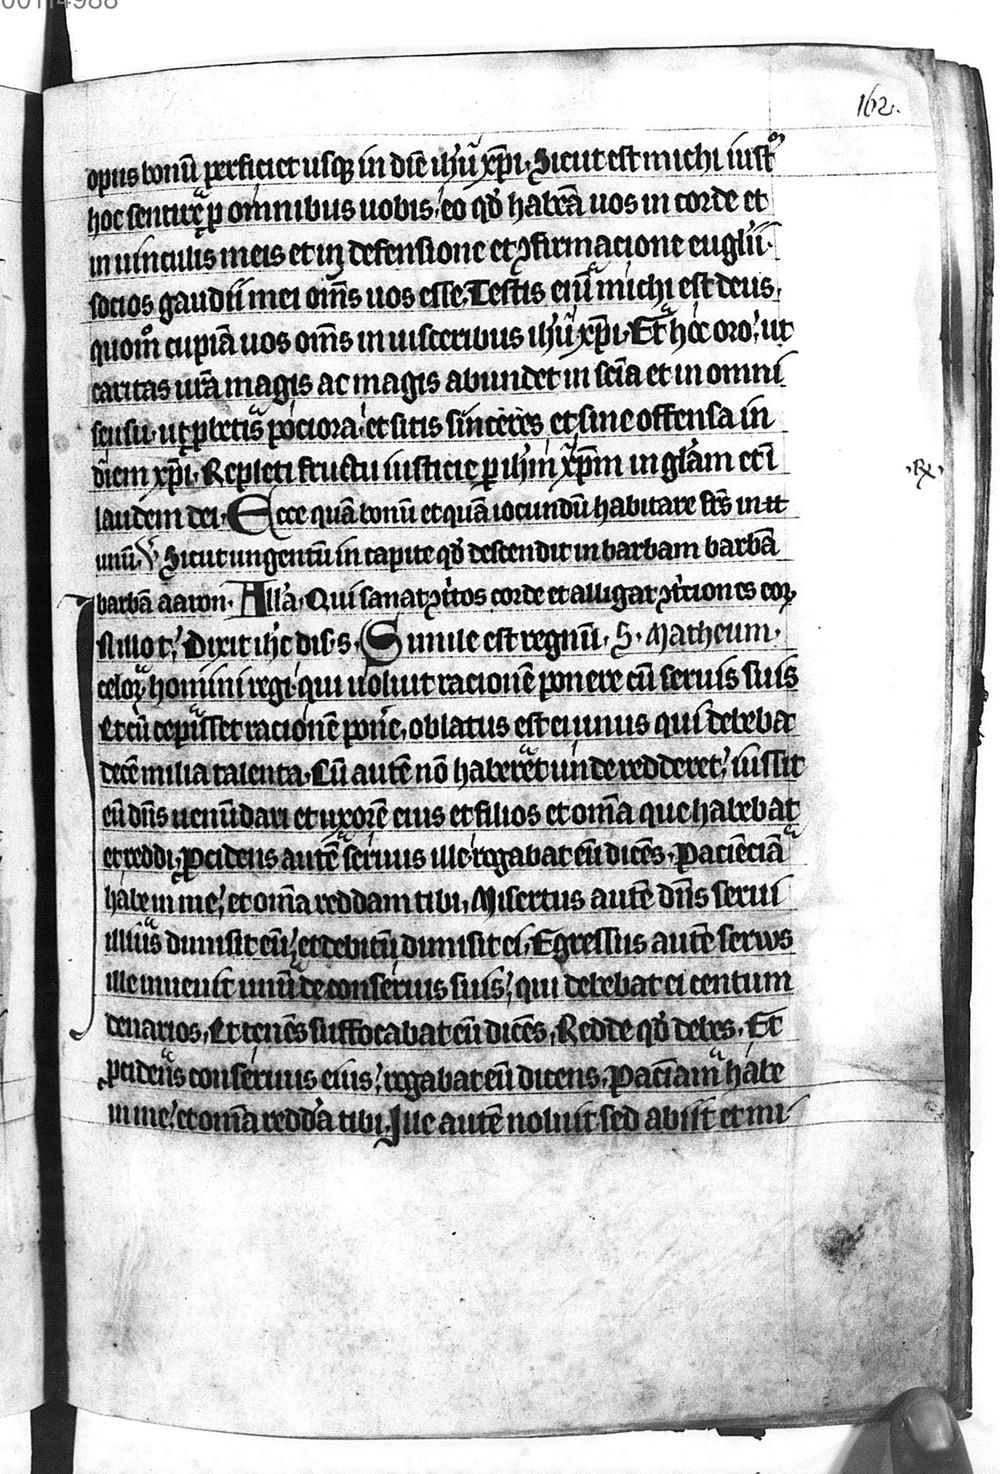 00114988
162.
opus bonū perficiet usq; in diē ihū xp̄i. Sicut est michi iust̄
hoc sentire p omnibus uobis, eo qd̓ habeā uos in corde et
in uinculis meis et in defensione et ꝯfirmacione euglii.
socios gaudii mei om̄s uos esse. Testis eni michi est deus,
quom̊ cupiā uos om̄s in uisceribus ihū xp̄i. Et hoc oro, ut
caritas ur̄a magis ac magis abundet in scīa et in omni
sensu. ut ꝓbetis pociora, et sitis sinceres et sine offensa in
diem xp̄i. Repleti fructu iusticie p ihm xp̄m in glām et ī
laudem dei. Ecce quā bonū et quā iocundū habitare frs̄ in
unū. V̓ Sicut ungentū in capite qd̓ descendit in barbam barbā
barbā aaron. All̓a. Qui sanat ꝯtͥtos corde et alligat ꝯtͥciones eoꝝ.
In illo t̄. Dixit ihc dis. s. Simile est regnū. S. Matheum.
celoꝝ homini regi qui uoluit racionē ponere cū seruis suis
Et cū cepisset racionē pon̄e, oblatus est ei unus qui debebat
decē milia talenta. Cū autē nō haberet unde redderet, iussit
eū dn̄s uenūdari et uxorē eius et filios et om̄a que habebat
et reddi. Pcidens autē seruus ille rogabat eū dicēs. Paciēciā
habe in me, et om̄a reddam tibi. Misertus autē dn̄s serui
illius dimisit eū, et debitū dimisit ei. Egressus autē seruus
ille inuenit unū de conseruis suis, qui debebat ei centum
denarios, Et tenēs suffocabat eū dicēs, Redde qd̓ debes. Et
pcidens conseruus eius, rogabat eū dicens, Paciam habe
in me, et om̄a reddā tibi. Ille autē noluit sed abiit et mi-